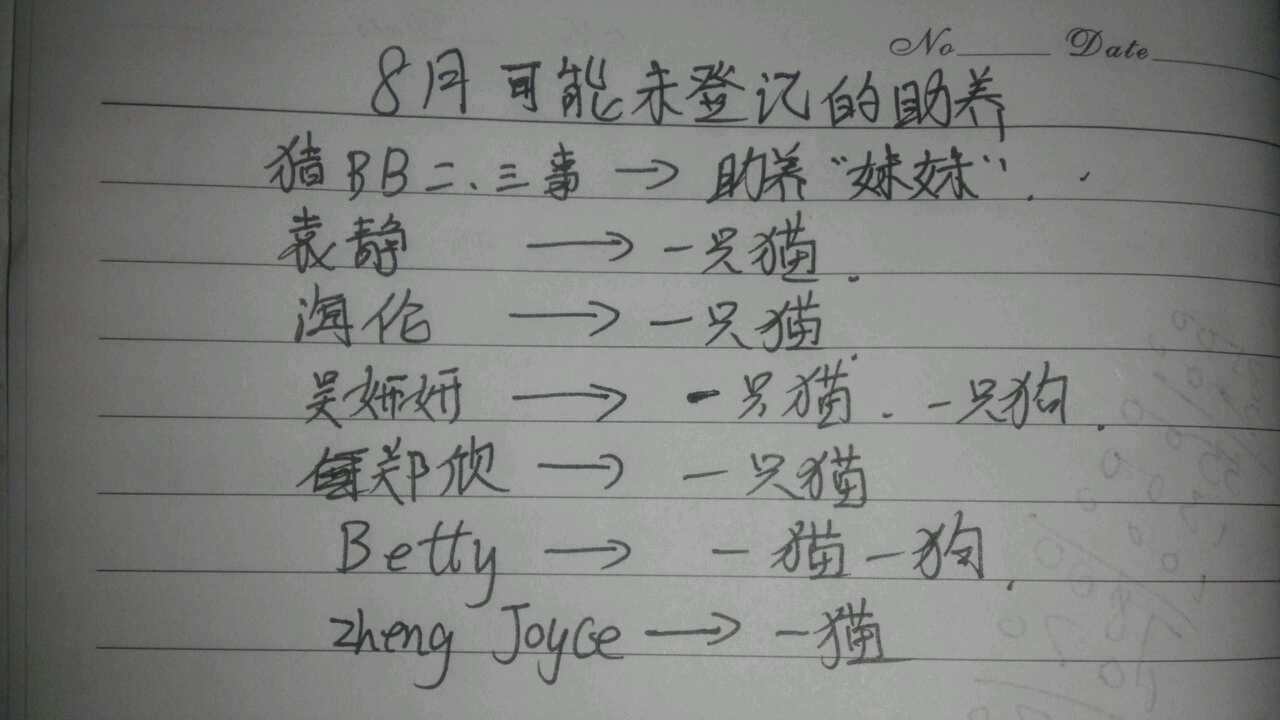 No Date
8月可能未登记的助养
猪BB二、三事 → 助养“妹妹”.
袁静 → 一只猫.
海伦 → 一只猫
吴妍妍 → 一只猫. 一只狗.
郑欣 → 一只猫
Betty → 一猫一狗.
zheng Joyce → 一猫